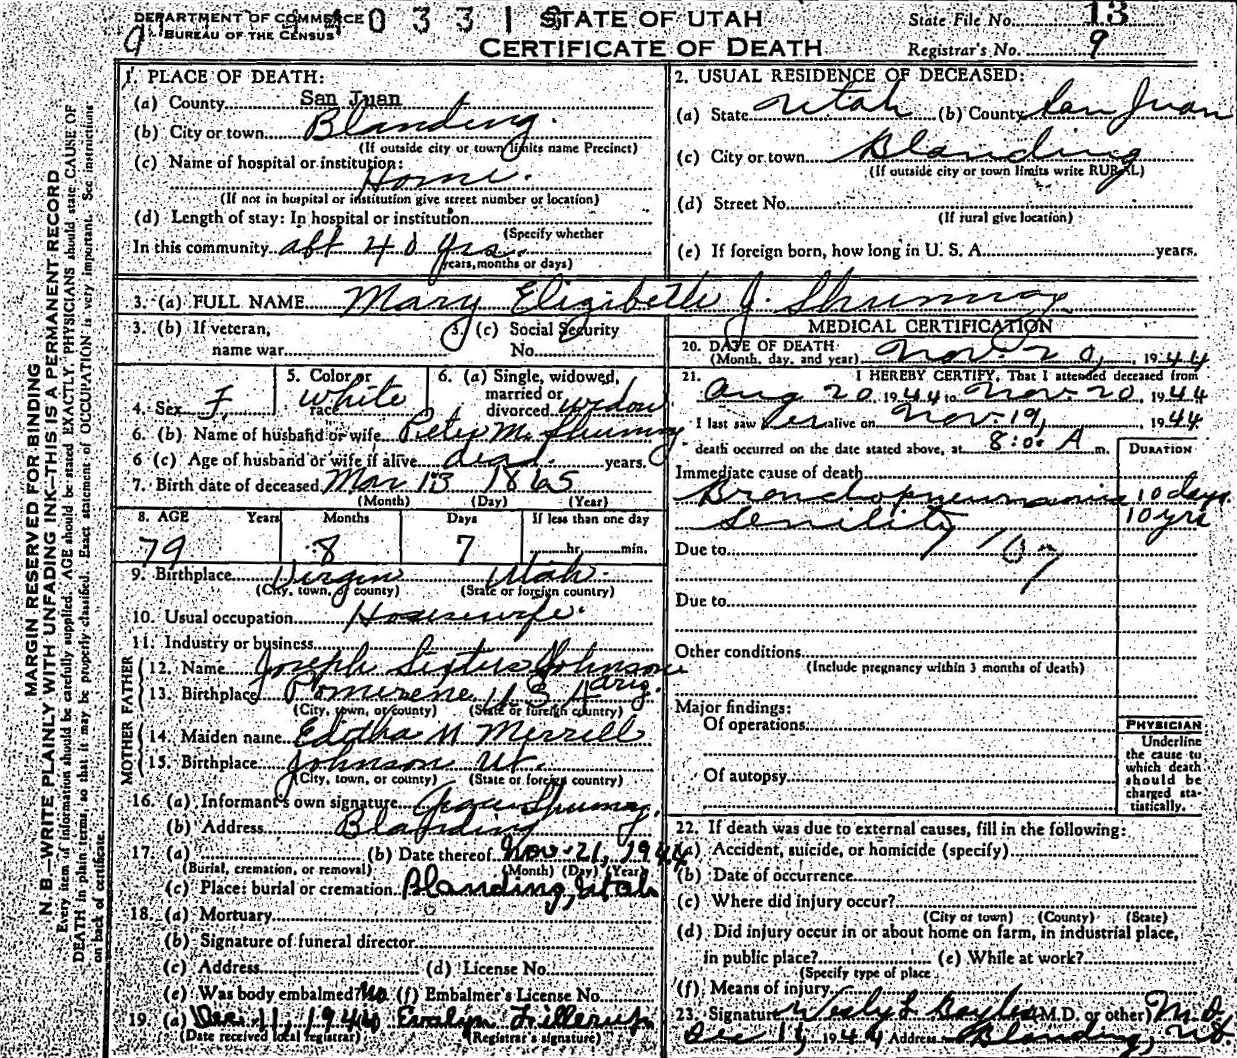 DEPARTMENT OF COMMERCE
BUREAU OF THE CENSUS
STATE OF UTAH
CERTIFICATE OF DEATH
State File No. 13
Registrar's No. 9
MARGIN RESERVED FOR BINDING
N. B.—WRITE PLAINLY WITH UNFADING INK—THIS IS A PERMANENT RECORD
Every item of information should be carefully supplied. AGE should be stated EXACTLY. PHYSICIANS should state CAUSE OF
DEATH in plain terms, so that it may be properly classified. Exact statement of OCCUPATION is very important. See instructions
on back of certificate.
1. PLACE OF DEATH:
(a) County San Juan
(b) City or town Blanding.
(If outside city or town limits name Precinct)
(c) Name of hospital or institution:
Home.
(If not in hospital or institution give street number or location)
(d) Length of stay: In hospital or institution
(Specify whether
In this community abt 40 yrs.
years, months or days)
2. USUAL RESIDENCE OF DECEASED:
(a) State Utah (b) County San Juan
(c) City or town Blanding
(If outside city or town limits write RURAL)
(d) Street No.
(If rural give location)
(e) If foreign born, how long in U. S. A. years.
3. (a) FULL NAME Mary Elizibeth J. Shumway
3. (b) If veteran,
name war
3. (c) Social Security
No.
4. Sex F.
5. Color or
race white
6. (a) Single, widowed,
married or
divorced widow
6. (b) Name of husband or wife Peter M. Shumway
6 (c) Age of husband or wife if alive dead years.
7. Birth date of deceased Mar 13 1865
(Month) (Day) (Year)
8. AGE Years Months Days If less than one day
79 8 7 hr. min.
9. Birthplace Virgin Utah.
(City, town, or county) (State or foreign country)
10. Usual occupation Housewife.
11. Industry or business
FATHER
12. Name Joseph Johnson
13. Birthplace Pomerene U S A Ariz.
(City, town, or county) (State or foreign country)
MOTHER
14. Maiden name Editha M Merrill
15. Birthplace Johnson Ut.
(City, town, or county) (State or foreign country)
16. (a) Informant's own signature Shumway.
(b) Address Blanding
17. (a) (b) Date thereof Nov-21, 1944
(Burial, cremation, or removal) (Month) (Day) (Year)
(c) Place: burial or cremation Blanding, Utah
18. (a) Mortuary
(b) Signature of funeral director
(c) Address (d) License No.
(e) Was body embalmed? No (f) Embalmer's License No.
19. (a) Dec. 11, 1944 Evalyn Fillerup
(Date received local registrar) (Registrar's signature)
MEDICAL CERTIFICATION
20. DATE OF DEATH
(Month, day, and year) Nov. 20, 1944
21. I HEREBY CERTIFY, That I attended deceased from
Aug 20, 1944 to Nov 20, 1944
I last saw her alive on Nov. 19, 1944
death occurred on the date stated above, at 8:00 A m.
DURATION
Immediate cause of death
Bronchopneumonia 10 days
Senility 10 yrs
Due to 107
Due to
Other conditions
(Include pregnancy within 3 months of death)
Major findings:
Of operations
Of autopsy
PHYSICIAN
Underline
the cause to
which death
should be
charged sta-
tistically.
22. If death was due to external causes, fill in the following:
(a) Accident, suicide, or homicide (specify)
(b) Date of occurrence
(c) Where did injury occur?
(City or town) (County) (State)
(d) Did injury occur in or about home on farm, in industrial place,
in public place? (e) While at work?
(Specify type of place
(f) Means of injury
23. Signature Wesly L Bayles (M.D. or other) M.D.
Dec 11, 1944 Address Blanding, Ut.